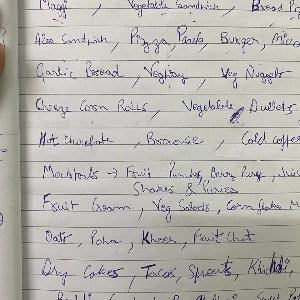 Maggi, Vegetable Sandwich, Bread Pi
Aloo Sandwich, Pizza Pasta, Burger, Mac
Garlic Bread, Veg Nuggets
Cheese Corn Rolls, Vegetable Cutlets
Hot Chocolate, Brownie, Cold coffee
Mocktails → Fruit Punch,
Shakes & Juices
Fruit Cream, Veg Salads, Corn flakes M
Oats, Poha, Kheer, Fruit Chat
Dry Cakes, Tacos, Sprouts, Khichdi